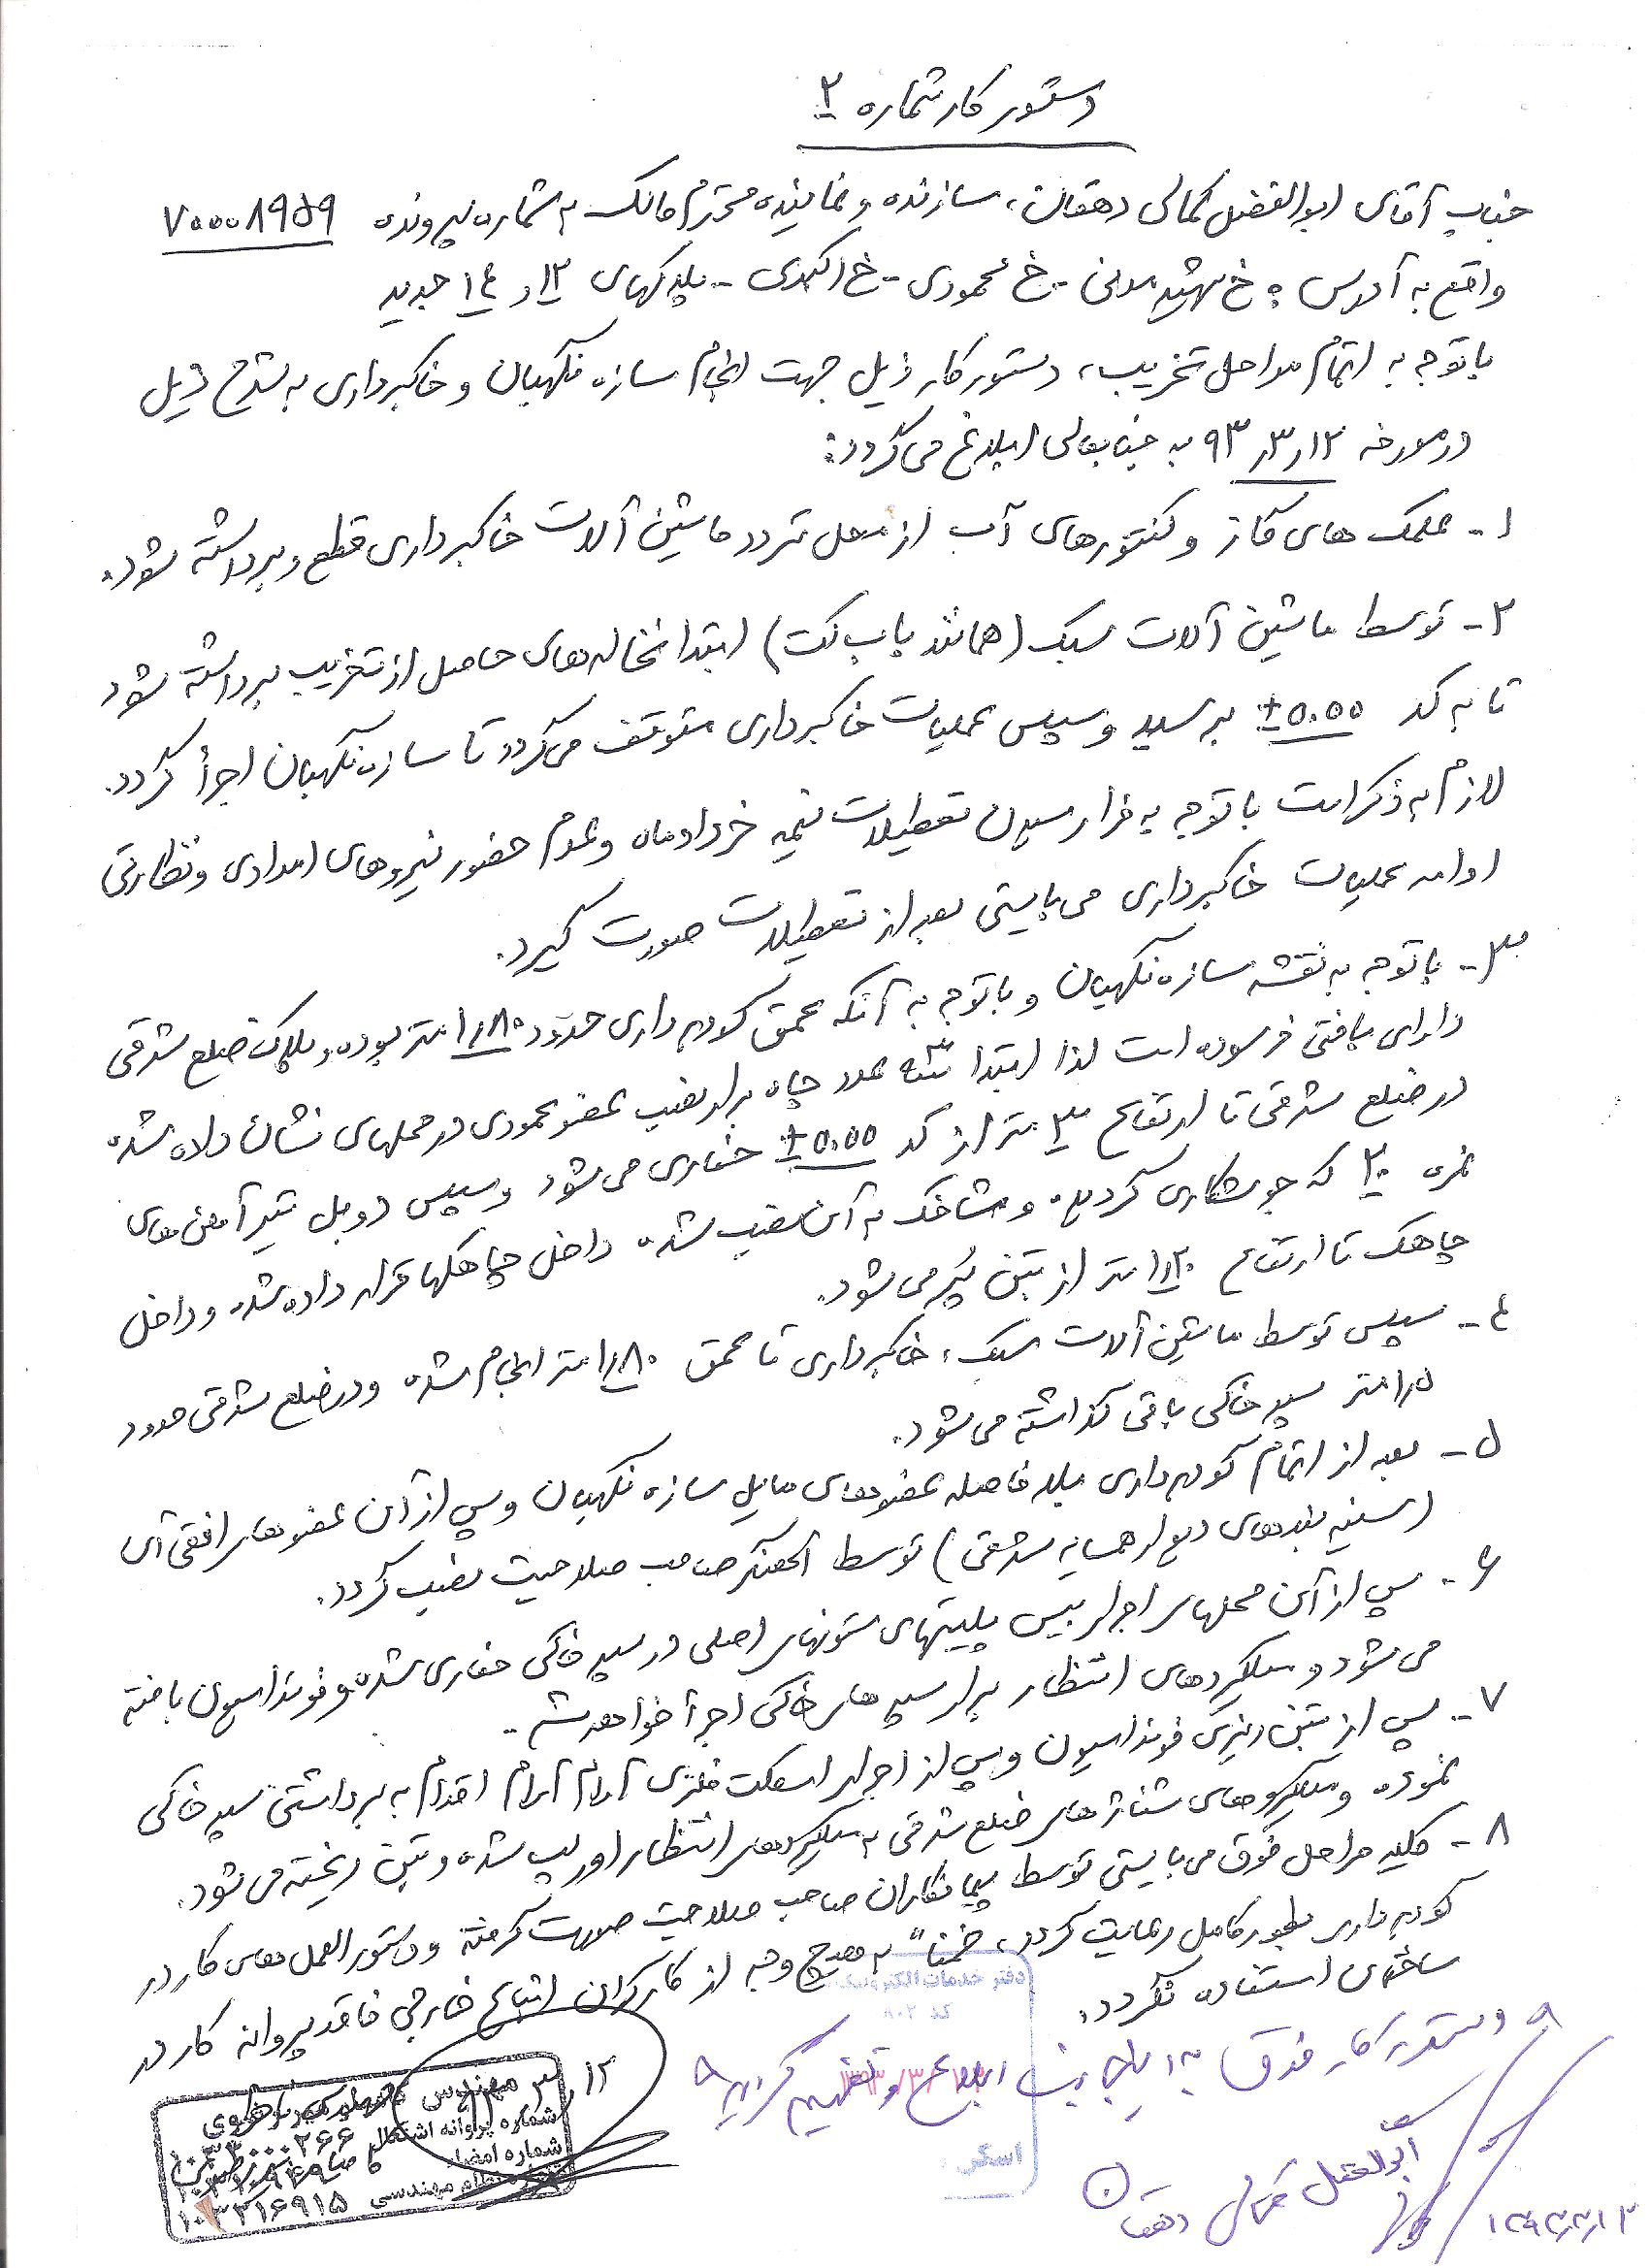 دستور کار شماره ۲
جناب آقای ابوالفضل کمالی دهقان، سازنده و نماینده محترم مالک به شماره پرونده ۷۰۰۰۸۹۵۹
واقع به آدرس: خ شهید مدنی - خ محمودی - خ اکبری - پلاکهای ۱۲ و ۱۴ جدید
با توجه به اتمام مراحل تخریب، دستور کار ذیل جهت انجام سازه نگهبان و خاکبرداری به شرح ذیل
در مورخه ۹۳٫۳٫۱۲ به جنابعالی ابلاغ می‌گردد:
۱- علمک های گاز و کنتورهای آب از محل تردد ماشین آلات خاکبرداری قطع و برداشته شود.
۲- توسط ماشین آلات سبک (همانند باب کت) ابتدا نخاله‌های حاصل از تخریب برداشته شود
تا به کد ±۰.۰۰ برسد و سپس عملیات خاکبرداری متوقف می‌گردد تا سازه نگهبان اجرأ گردد.
لازم به ذکر است با توجه به فرا رسیدن تعطیلات نیمه خرداد ماه و عدم حضور نیروهای امدادی و نظارتی
ادامه عملیات خاکبرداری می‌بایستی بعد از تعطیلات صورت گیرد.
۳- با توجه به نقشه سازه نگهبان و با توجه به آنکه عمق گودبرداری حدود ۱٫۸۰ متر بوده و پلاک ضلع شرقی
دارای بافتی فرسوده است لذا ابتدا ۳ عدد چاه برای نصب عضو عمودی در محلهای نشان داده شده
در ضلع شرقی تا ارتفاع ۳ متر از کد ±۰.۰۰ حفاری می‌شود و سپس دوبل تیرآهن های
نمره ۲۰ که جوشکاری گردیده و شاخک به آن نصب شده داخل چاهکها قرار داده شده و داخل
چاهک تا ارتفاع ۱٫۲۰ متر از بتن پُر می‌شود.
۴- سپس توسط ماشین آلات سبک، خاکبرداری تا عمق ۱٫۸۰ متر انجام شده و در ضلع شرقی حدود
۱٫۵ متر سپر خاکی باقی گذاشته می‌شود.
۵- بعد از اتمام گودبرداری بلافاصله عضوهای مایل سازه نگهبان و پس از آن عضوهای افقی آن
(سینه بندهای دیوار همسایه شرقی) توسط آهنگر صاحب صلاحیت نصب گردد.
۶- پس از آن محلهای اجرای بیس پلیتهای ستونهای اصلی در سپر خاکی حفاری شده و فونداسیون بافته
می‌شود و میلگردهای انتظار برای سپرهای خاکی اجرأ خواهد شد.
۷- پس از بتن ریزی فونداسیون و پس از اجرای اسکلت فلزی آرام آرام اقدام به برداشتن سپر خاکی
نموده و میلگردهای شناژهای ضلع شرقی به میلگردهای انتظار اورلپ شده و بتن ریخته می‌شود.
۸- کلیه مراحل فوق می‌بایستی توسط پیمانکاران صاحب صلاحیت صورت گرفته و دستورالعمل‌های کار در
گودبرداری بطور کامل رعایت گردد، ضمناً به هیچ وجه از کارگران اتباع خارجی فاقد پروانه کار در
ساختمان استفاده نگردد.
دفتر خدمات الکترونیک
کد ۸۰۲
دستور کار فوق به اینجانب ابلاغ و تفهیم گردید
اسکن
ابوالفضل کمالی دهقان
۱۳۹۳٫۳٫۱۲
مهندس
شماره پروانه اشتغال
شماره امضاء
شماره نظام مهندسی ۱۰۳۳۱۶۹۱۵